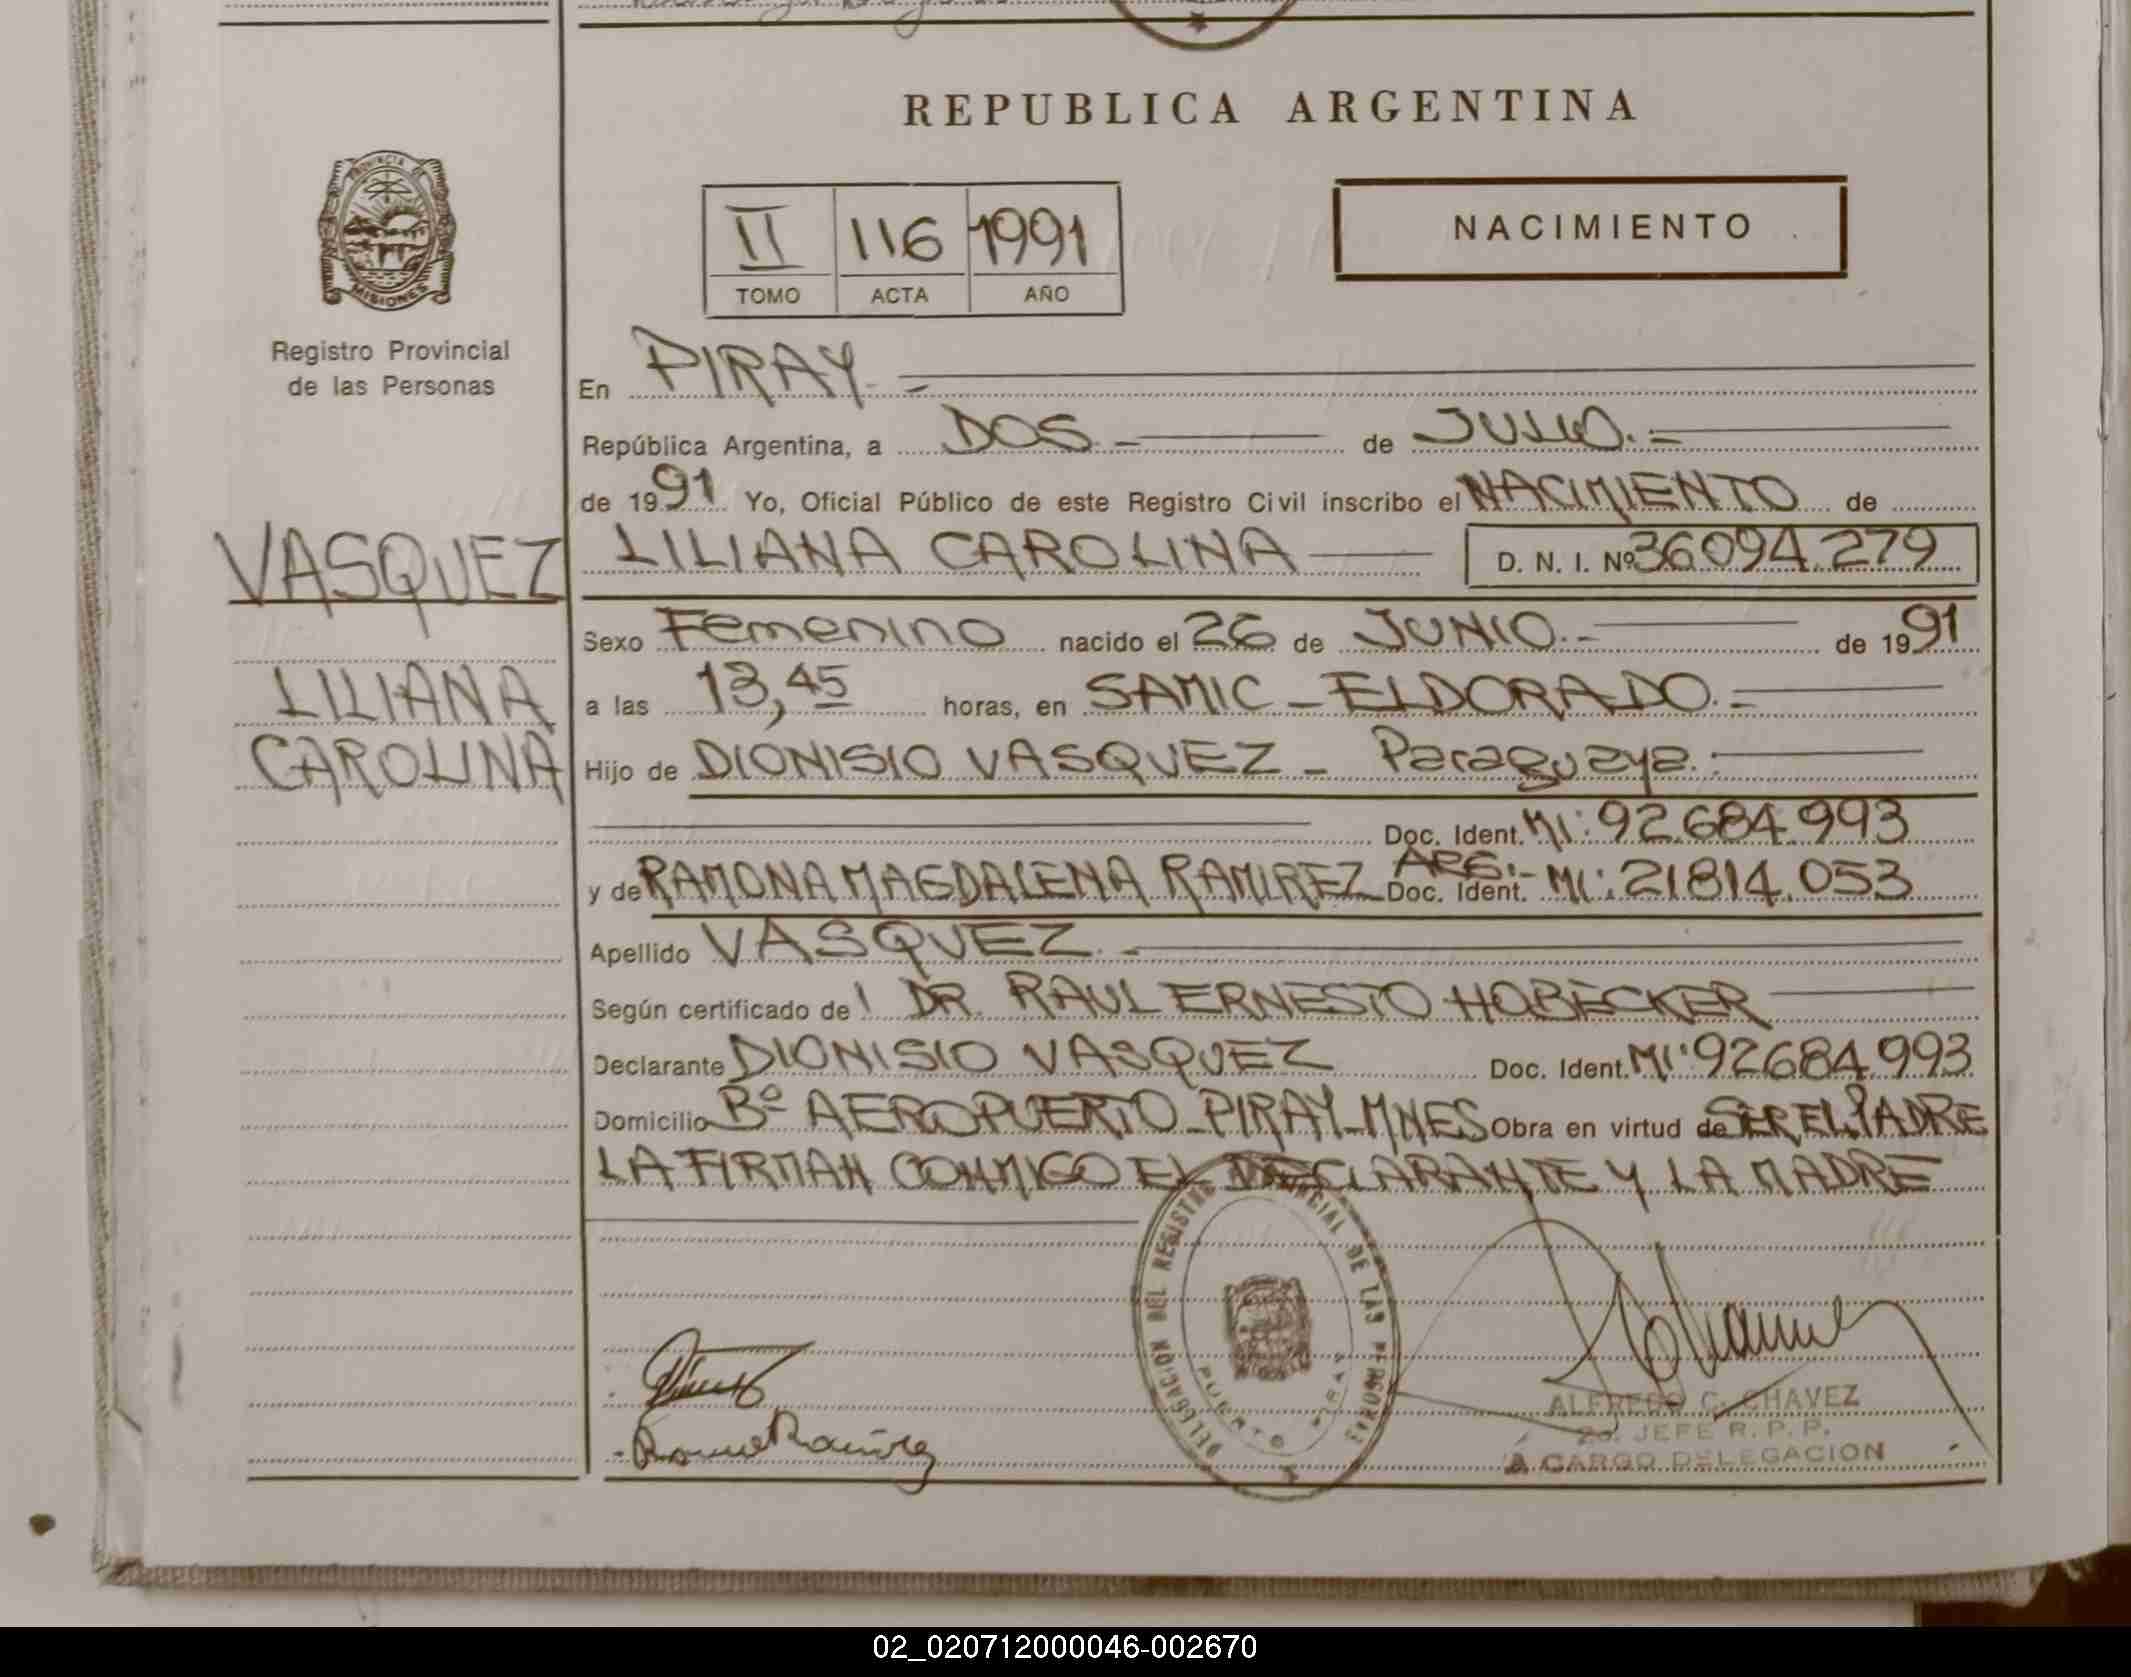 REPUBLICA ARGENTINA
PROVINCIA DE
MISIONES
Registro Provincial
de las Personas
II 116 1991
TOMO ACTA AÑO
NACIMIENTO
En PIRAY.-
República Argentina, a DOS.- de JULIO.-
de 1991 Yo, Oficial Público de este Registro Civil inscribo el NACIMIENTO de
VASQUEZ
LILIANA
CAROLINA
LILIANA CAROLINA D. N. I. Nº 36094.279
Sexo Femenino nacido el 26 de JUNIO.- de 1991
a las 13,45 horas, en SAMIC - ELDORADO.-
Hijo de DIONISIO VASQUEZ - Paraguaya.-
Doc. Ident. MI: 92.684.993
y de RAMONA MAGDALENA RAMIREZ ARG.- Doc. Ident. MI: 21814.053
Apellido VASQUEZ.-
Según certificado de l DR. RAUL ERNESTO HOBECKER
Declarante DIONISIO VASQUEZ Doc. Ident. MI: 92684.993
Domicilio Bº AEROPUERTO - PIRAY - MNES Obra en virtud de SER EL PADRE
LA FIRMAN CONMIGO EL DECLARANTE Y LA MADRE
DELEGACION DEL REGISTRO PROVINCIAL DE LAS PERSONAS
PUERTO PIRAY
Ramona Ramirez
ALFREDO C. CHAVEZ
2o. JEFE R. P. P.
A CARGO DELEGACION
02_020712000046-002670